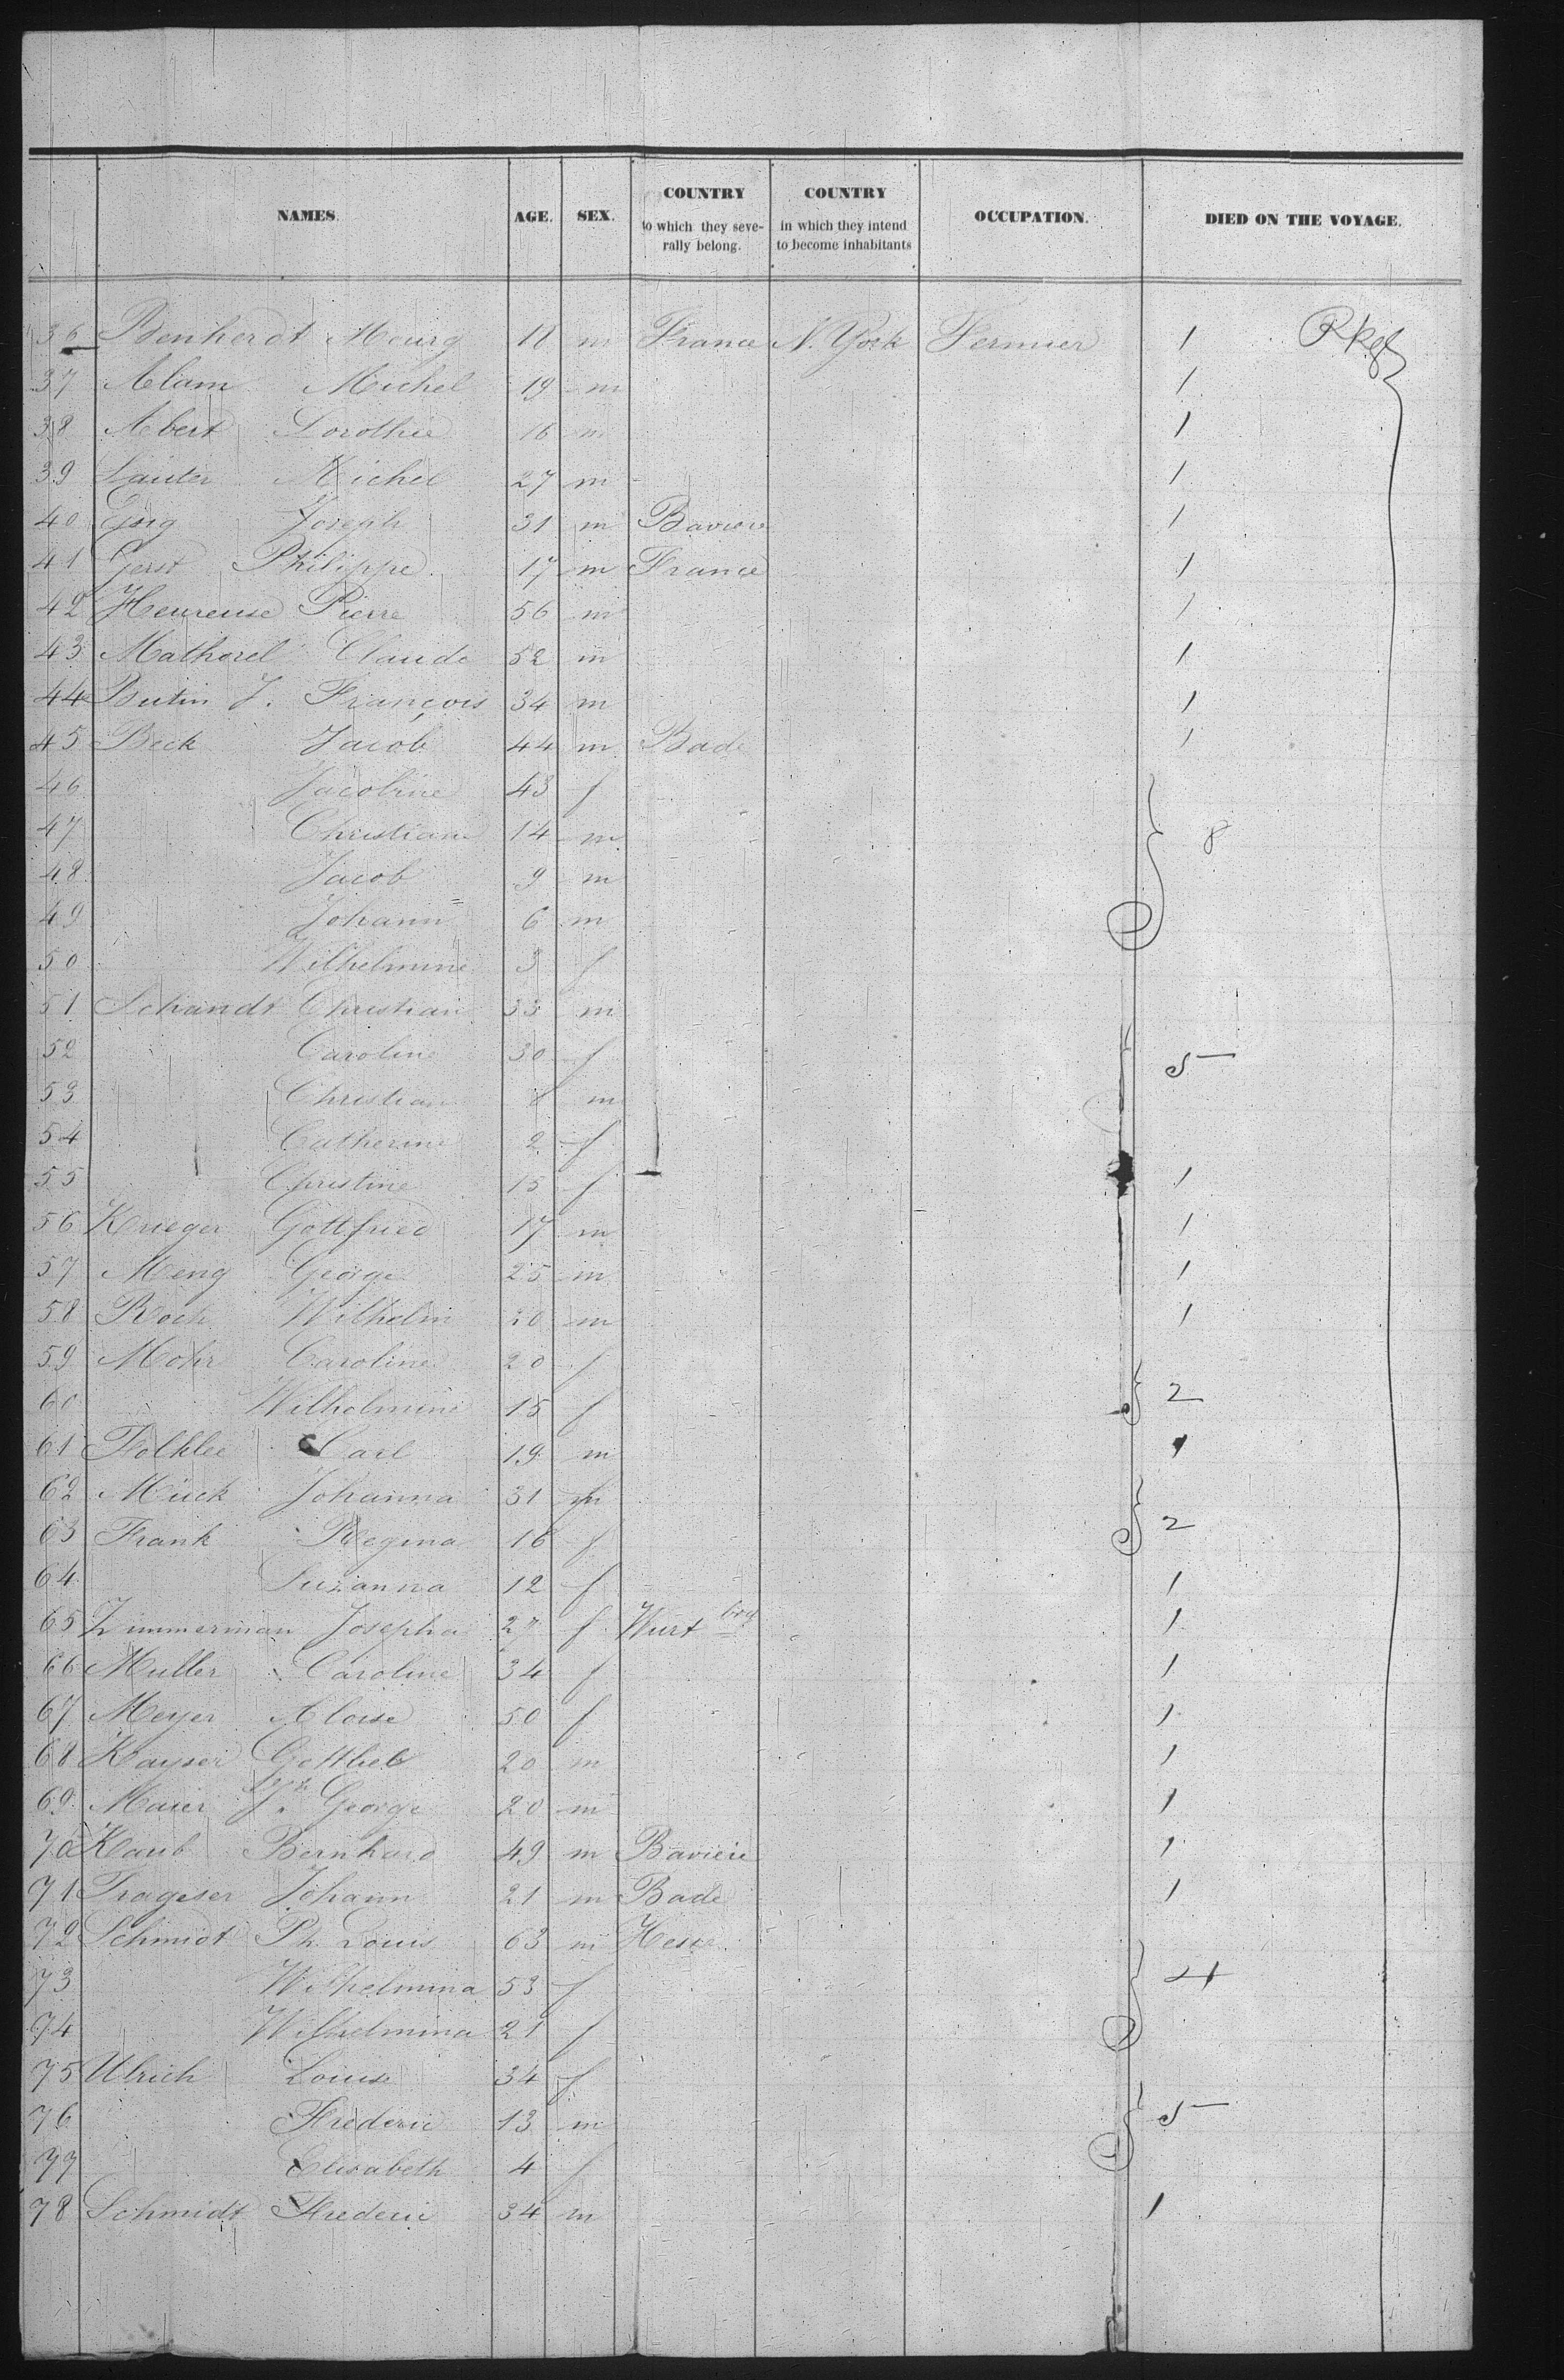 NAMES. AGE. SEX. COUNTRY to which they severally belong. COUNTRY in which they intend to become inhabitants OCCUPATION. DIED ON THE VOYAGE.
36 Benherdt 18 m France N. York Fermier 1
37 Adam Michel 19 m 1
38 Abert Dorothie 16 m 1
39 Sauter Michel 27 m 1
40 Joseph 31 m Baviere 1
41 Gerst Philippe 17 m France 1
42 Heureuse Pierre 56 m 1
43 Mathorel Claude 52 m 1
44 Butin J. François 34 m 1
45 Beck Jacob 44 m Bade 1
46 Jacobine 43 f
47 Christian 14 m 8
48 Jacob 9 m
49 Johann 6 m
50 Wilhelmine 3 f
51 Schandt Christian 33 m
52 Caroline 30 f 5
53 Christian m
54 Catherine 2 f
55 Christine 15 f 1
56 Krieger Gottfried 17 m 1
57 Meng George 25 m 1
58 Koch Wilhelm 20 m 1
59 Mohr Caroline 20 f
60 Wilhelmine 15 f 2
61 Carl 19 m 1
62 Mück Johanna 31
63 Frank Regina 16 f 2
64 Suzanna 12 f 1
65 Zimmerman Josepha 27 f Wurtbrg 1
66 Muller Caroline 34 f 1
67 Meyer Aloise 50 f 1
68 Kayser Gottlieb 20 m 1
69 Maier George 20 m 1
70 Kaub Bernhard 49 m Baviere 1
71 Trageser Johann 21 m Bade 1
72 Schmidt Ph. Louis 63 m Hesse
73 Wilhelmina 53 f 4
74 Wilhelmina 21 f
75 Ulrich Louise 34 f
76 Frederic 13 m 5
77 Elisabeth 4 f
78 Schmidt Frederic 34 m 1